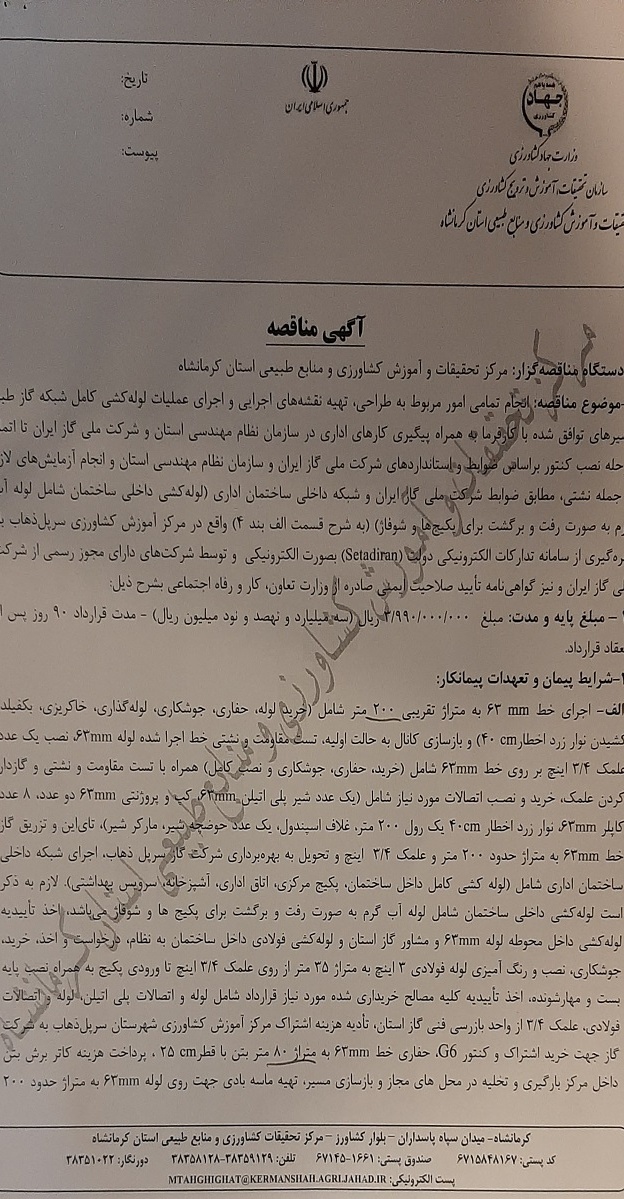 تاریخ:
شماره:
پیوست:
جمهوری اسلامی ایران
همه با هم
جهاد
کشاورزی
وزارت جهاد کشاورزی
سازمان تحقیقات، آموزش و ترویج کشاورزی
و آموزش کشاورزی و منابع طبیعی استان کرمانشاه
آگهی مناقصه
دستگاه مناقصه‌گزار: مرکز تحقیقات و آموزش کشاورزی و منابع طبیعی استان کرمانشاه
-موضوع مناقصه: انجام تمامی امور مربوط به طراحی، تهیه نقشه‌های اجرایی و اجرای عملیات لوله‌کشی کامل شبکه گاز
توافق شده با کارفرما به همراه پیگیری کارهای اداری در سازمان نظام مهندسی استان و شرکت ملی گاز ایران تا
نصب کنتور براساس ضوابط و استانداردهای شرکت ملی گاز ایران و سازمان نظام مهندسی استان و انجام آزمایش‌های
جمله نشتی، مطابق ضوابط شرکت ملی گاز ایران و شبکه داخلی ساختمان اداری (لوله‌کشی داخلی ساختمان شامل لوله
به صورت رفت و برگشت برای پکیج‌ها و شوفاژ) (به شرح قسمت الف بند ۴) واقع در مرکز آموزش کشاورزی سرپل‌ذهاب
از سامانه تدارکات الکترونیکی دولت (Setadiran) بصورت الکترونیکی و توسط شرکت‌های دارای مجوز رسمی از
گاز ایران و نیز گواهی‌نامه تأیید صلاحیت ایمنی صادره از وزارت تعاون، کار و رفاه اجتماعی بشرح ذیل:
– مبلغ پایه و مدت: مبلغ ۳/۹۹۰/۰۰۰/۰۰۰ ریال (سه میلیارد و نهصد و نود میلیون ریال) – مدت قرارداد ۹۰ روز پس
قرارداد.
-شرایط پیمان و تعهدات پیمانکار:
الف- اجرای خط ۶۳ mm به متراژ تقریبی ۲۰۰ متر شامل (خرید لوله، حفاری، جوشکاری، لوله‌گذاری، خاکریزی، بکفیلد
کشیدن نوار زرد اخطار ۴۰cm) و بازسازی کانال به حالت اولیه، تست مقاومت و نشتی خط اجرا شده لوله ۶۳mm، نصب یک عدد
علمک ۳/۴ اینچ بر روی خط ۶۳mm شامل (خرید، حفاری، جوشکاری و نصب کامل) همراه با تست مقاومت و نشتی و گازدار
کردن علمک، خرید و نصب اتصالات مورد نیاز شامل (یک عدد شیر پلی اتیلن ۶۳mm، کپ و پروژنتی ۶۳mm دو عدد، ۸ عدد
کاپلر ۶۳mm، نوار زرد اخطار ۴۰cm یک رول ۲۰۰ متر، غلاف اسپندول، یک عدد حوضچه شیر، مارکر شیر)، تای‌این و تزریق گاز
خط ۶۳mm به متراژ حدود ۲۰۰ متر و علمک ۳/۴ اینچ و تحویل به بهره‌برداری شرکت گاز سرپل ذهاب، اجرای شبکه داخلی
ساختمان اداری شامل (لوله کشی کامل داخل ساختمان، پکیج مرکزی، اتاق اداری، آشپزخانه، سرویس بهداشتی). لازم به ذکر
است لوله‌کشی داخلی ساختمان شامل لوله آب گرم به صورت رفت و برگشت برای پکیج ها و شوفاژ می‌باشد، اخذ تأییدیه
لوله‌کشی داخل محوطه لوله ۶۳mm و مشاور گاز استان و لوله‌کشی فولادی داخل ساختمان به نظام، درخواست و اخذ، خرید،
جوشکاری، نصب و رنگ آمیزی لوله فولادی ۳ اینچ به متراژ ۳۵ متر از روی علمک ۳/۴ اینچ تا ورودی پکیج به همراه نصب پایه
بست و مهارشونده، اخذ تأییدیه کلیه مصالح خریداری شده مورد نیاز قرارداد شامل لوله و اتصالات پلی اتیلن، لوله و اتصالات
فولادی، علمک ۳/۴ از واحد بازرسی فنی گاز استان، تأدیه هزینه اشتراک مرکز آموزش کشاورزی شهرستان سرپل‌ذهاب به شرکت
گاز جهت خرید اشتراک و کنتور G6، حفاری خط ۶۳mm به متراژ ۸۰ متر بتن با قطر ۲۵cm ، پرداخت هزینه کاتر برش بتن
داخل مرکز بارگیری و تخلیه در محل های مجاز و بازسازی مسیر، تهیه ماسه بادی جهت روی لوله ۶۳mm به متراژ حدود ۲۰۰
مرکز تحقیقات و آموزش کشاورزی و منابع طبیعی استان کرمانشاه
کرمانشاه- میدان سپاه پاسداران – بلوار کشاورز – مرکز تحقیقات کشاورزی و منابع طبیعی استان کرمانشاه
کد پستی: ۶۷۱۵۸۴۸۱۶۷ صندوق پستی: ۱۶۶۱-۶۷۱۴۵ تلفن: ۳۸۳۵۹۱۲۹-۳۸۳۵۸۱۲۸ دورنگار: ۳۸۳۵۱۰۲۲
پست الکترونیکی: MTAHGHIGHAT@KERMANSHAH.AGRI.JAHAD.IR